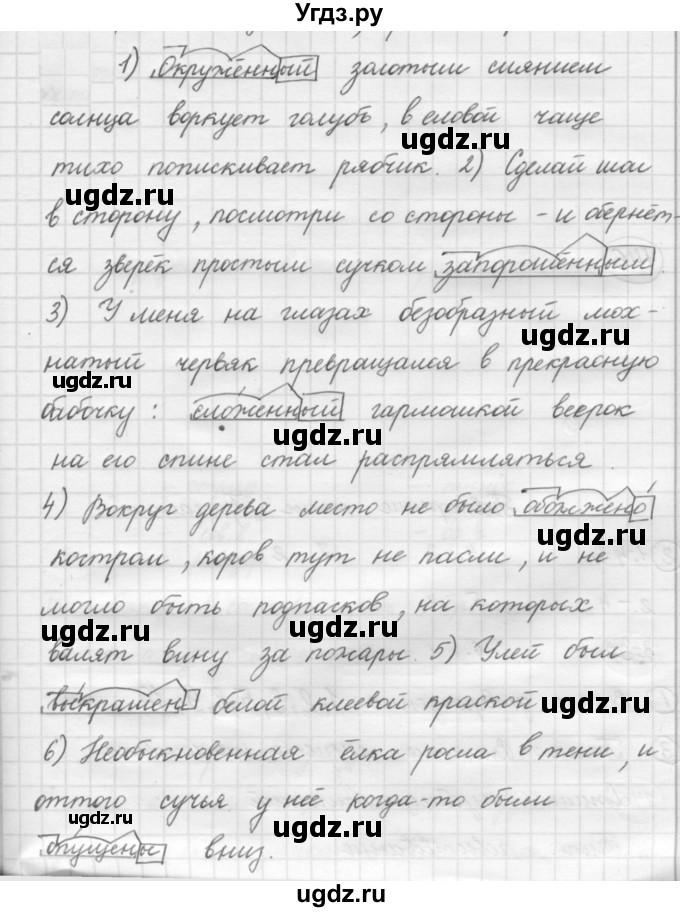 Угдз.ру
1) Окружённый золотым сиянием
солнца воркует голубь, в еловой чаще
тихо попискивает рябчик. 2) Сделай шаг
в сторону, посмотри со стороны - и обернёт-
ся зверёк простым сучком запорошённым.
3) У меня на глазах безобразный мох-
натый червяк превращался в прекрасную
бабочку: сложенный гармошкой веерок
на его спине стал распрямляться.
4) Вокруг дерева место не было обожжено
костром, коров тут не пасли, и не
могло быть подпасков, на которых
валят вину за пожары. 5) Улей был
выкрашен белой клеевой краской
6) Необыкновенная ёлка росла в тени, и
оттого сучья у неё когда-то были
опущены вниз.
ugdz.ru
ugdz.ru
ugdz.ru
ugdz.ru
ugdz.ru
ugdz.ru
ugdz.ru
ugdz.ru
ugdz.ru
ugdz.ru
ugdz.ru
ugdz.ru
ugdz.ru
ugdz.ru